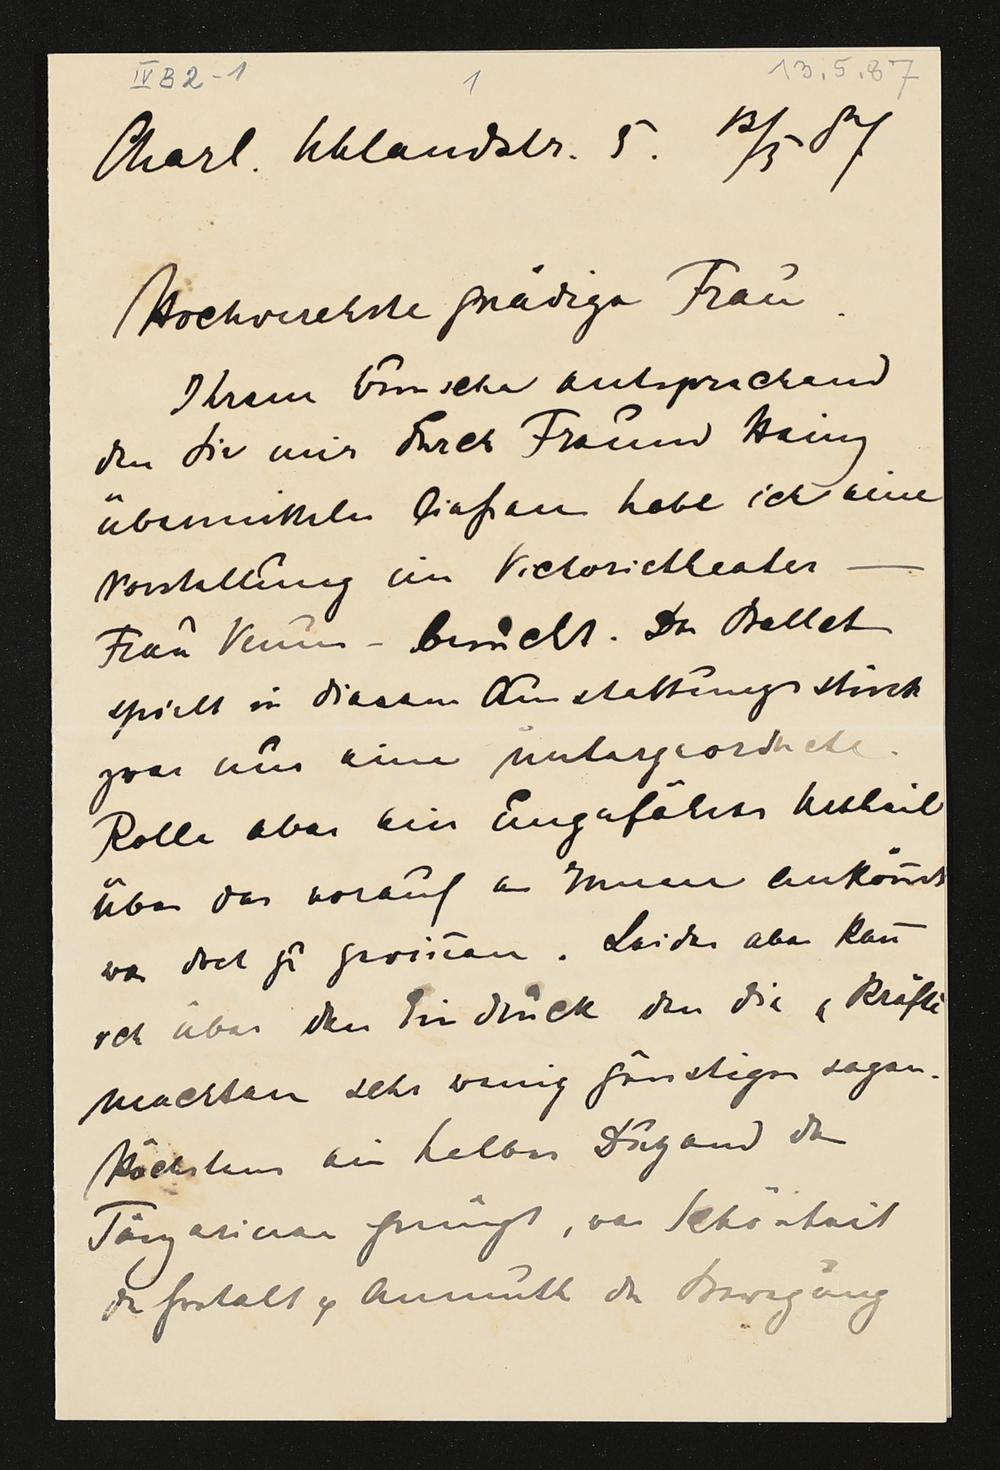 IV B 2-1 1 13.5.87
Charl. Uhlandstr. 5. 13/5 87
Hochverehrte gnädige Frau.
Ihrem Wunsche entsprechend
den Sie mir durch Freund Hainz
übermitteln ließen habe ich eine
Vorstellung im Victoriatheater —
Frau Venus - besucht. Das Ballet
spielt in diesem Ausstattungsstück
zwar nur eine untergeordnete
Rolle aber ein ungefähres Urtheil
über das worauf es Ihnen ankömt
war doch zu gewinnen. Leider aber kan
ich über den Eindruck den die „Kräfte
machten sehr wenig günstiges sagen.
Höchstens ein halbes Dutzend der
Tänzerinnen genügt, was Schönheit
der Gestalt & Anmuth der Bewegung